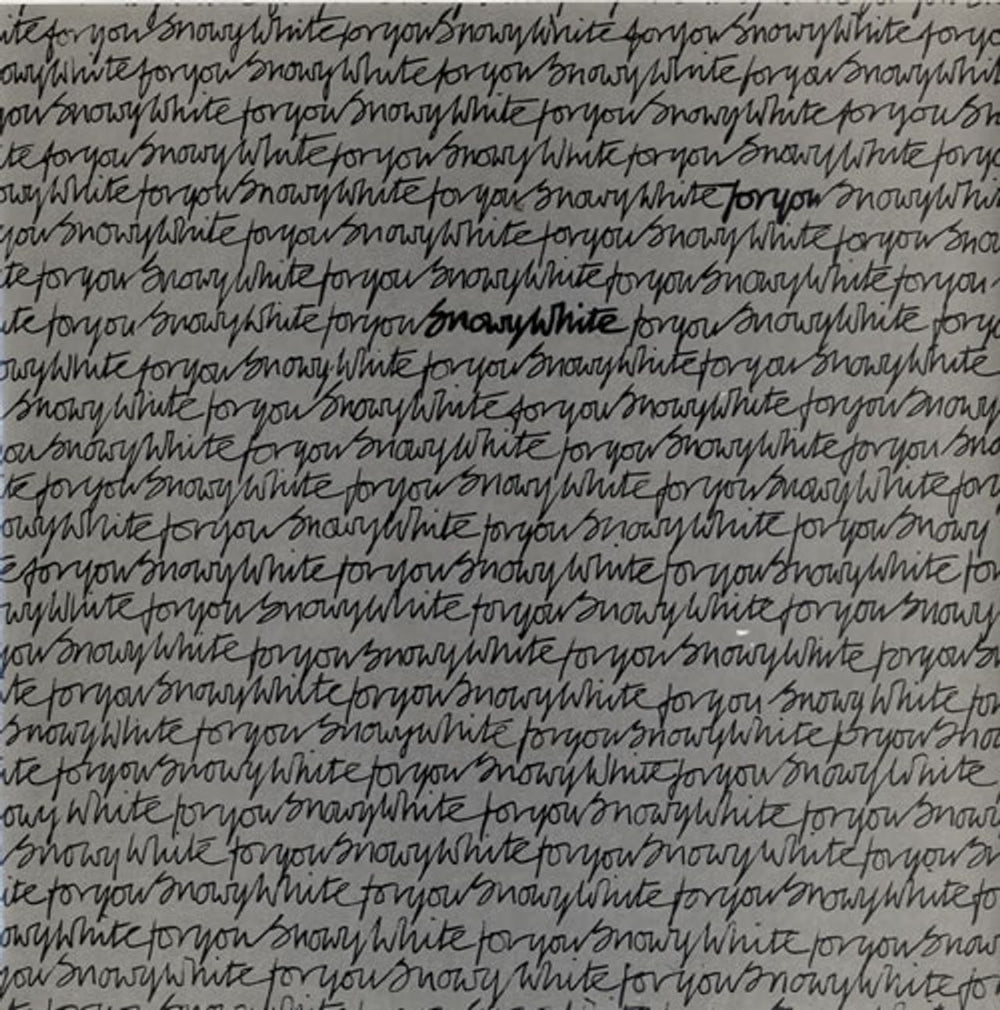 ite for you Snowy White for you Snowy White for you Snowy White for yo
owy White for you Snowy White for you Snowy White for you Snowy Whit
you Snowy White for you Snowy White for you Snowy White for you Sn
te for you Snowy White for you Snowy White for you Snowy White for yo
owy White for you Snowy White for you Snowy White for you Snowy Whi
you Snowy White for you Snowy White for you Snowy White for you Sno
te for you Snowy White for you Snowy White for you Snowy White for you
te for you Snowy White for you Snowy White for you Snowy White for y
owy White for you Snowy White for you Snowy White for you Snowy White
Snowy White for you Snowy White for you Snowy White for you Snowy
ou Snowy White for you Snowy White for you Snowy White for you Sno
te for you Snowy White for you Snowy White for you Snowy White for
owy White for you Snowy White for you Snowy White for you Snowy
e for you Snowy White for you Snowy White for you Snowy White for
wy White for you Snowy White for you Snowy White for you Snowy
you Snowy White for you Snowy White for you Snowy White for you S
te for you Snowy White for you Snowy White for you Snowy White for
Snowy White for you Snowy White for you Snowy White for you Sno
te for you Snowy White for you Snowy White for you Snowy White
owy White for you Snowy White for you Snowy White for you Snow
Snowy White for you Snowy White for you Snowy White for you Sn
ite for you Snowy White for you Snowy White for you Snowy White fo
owy White for you Snowy White for you Snowy White for you Snow
you Snowy White for you Snowy White for you Snowy White fo